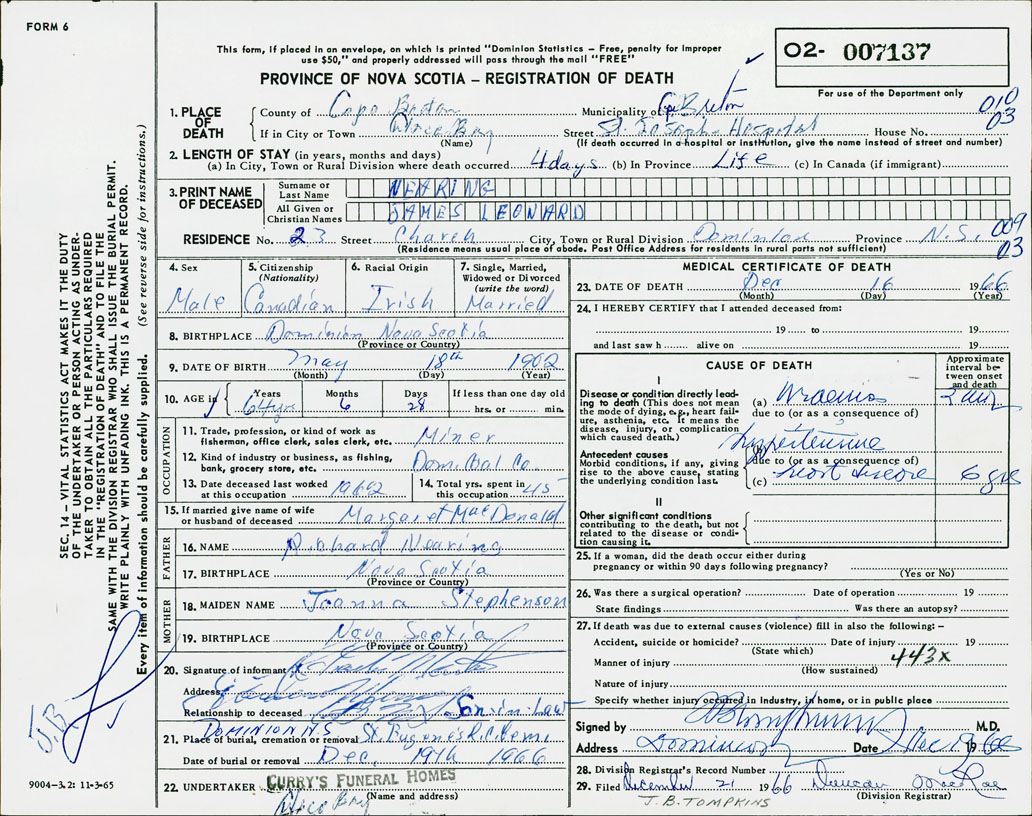 FORM 6
This form, if placed in an envelope, on which is printed "Dominion Statistics – Free, penalty for improper
use $50," and properly addressed will pass through the mail "FREE"
PROVINCE OF NOVA SCOTIA – REGISTRATION OF DEATH
02- 007137
For use of the Department only
010
03
1. PLACE OF DEATH
County of Cape Breton Municipality of C. Breton
If in City or Town Glace Bay Street St. Joseph's Hospital House No.
(Name) (If death occurred in a hospital or institution, give the name instead of street and number)
2. LENGTH OF STAY (in years, months and days)
(a) In City, Town or Rural Division where death occurred 4 days (b) In Province Life (c) In Canada (if immigrant)
3. PRINT NAME OF DECEASED
Surname or Last Name NEARING
All Given or Christian Names JAMES LEONARD
RESIDENCE No. 23 Street Church City, Town or Rural Division Dominion Province N.S.
(Residence means usual place of abode. Post Office Address for residents in rural parts not sufficient)
009
03
4. Sex Male
5. Citizenship (Nationality) Canadian
6. Racial Origin Irish
7. Single, Married, Widowed or Divorced (write the word) Married
8. BIRTHPLACE Dominion Nova Scotia
(Province or Country)
9. DATE OF BIRTH May 18th 1902
(Month) (Day) (Year)
10. AGE in Years 64 yrs Months 6 Days 28 If less than one day old hrs. or min.
OCCUPATION
11. Trade, profession, or kind of work as fisherman, office clerk, sales clerk, etc. Miner
12. Kind of industry or business, as fishing, bank, grocery store, etc. Dom. Coal Co.
13. Date deceased last worked at this occupation 1962
14. Total yrs. spent in this occupation 45
15. If married give name of wife or husband of deceased Margaret MacDonald
FATHER
16. NAME Richard Nearing
17. BIRTHPLACE Nova Scotia
(Province or Country)
MOTHER
18. MAIDEN NAME Joanna Stephenson
19. BIRTHPLACE Nova Scotia
(Province or Country)
20. Signature of informant
Address
Relationship to deceased Son-in-Law
DOMINION N.S.
21. Place of burial, cremation or removal St. Eugenes R.C. Cem.
Date of burial or removal Dec. 19th 1966
22. UNDERTAKER CURRY'S FUNERAL HOMES
Glace Bay (Name and address)
MEDICAL CERTIFICATE OF DEATH
23. DATE OF DEATH Dec 16 1966
(Month) (Day) (Year)
24. I HEREBY CERTIFY that I attended deceased from:
19 to 19
and last saw h alive on 19
CAUSE OF DEATH
Approximate interval between onset and death
I
Disease or condition directly leading to death (This does not mean the mode of dying, e.g., heart failure, asthenia, etc. It means the disease, injury, or complication which caused death.)
(a) Uraemia
due to (or as a consequence of)
Antecedent causes
Morbid conditions, if any, giving rise to the above cause, stating the underlying condition last.
(b) Hypertensive
due to (or as a consequence of)
(c) heart disease 6 yrs
II
Other significant conditions contributing to the death, but not related to the disease or condition causing it.
25. If a woman, did the death occur either during
pregnancy or within 90 days following pregnancy?
(Yes or No)
26. Was there a surgical operation? Date of operation 19
State findings Was there an autopsy?
27. If death was due to external causes (violence) fill in also the following: –
Accident, suicide or homicide? Date of injury 19
(State which)
Manner of injury 443x
(How sustained)
Nature of injury
Specify whether injury occurred in Industry, in home, or in public place
Signed by M.D.
Address Dominion Date Dec. 1966
28. Division Registrar's Record Number
29. Filed December 21 1966 Duncan MacRae
J.B. TOMPKINS (Division Registrar)
SEC. 14 – VITAL STATISTICS ACT MAKES IT THE DUTY
OF THE UNDERTAKER OR PERSON ACTING AS UNDER-
TAKER TO OBTAIN ALL THE PARTICULARS REQUIRED
IN THE "REGISTRATION OF DEATH" AND TO FILE THE
SAME WITH THE DIVISION REGISTRAR WHO SHALL ISSUE THE BURIAL PERMIT.
WRITE PLAINLY WITH UNFADING INK. THIS IS A PERMANENT RECORD.
Every item of information should be carefully supplied. (See reverse side for instructions.)
J.B.
9004-3.2: 11-3-65